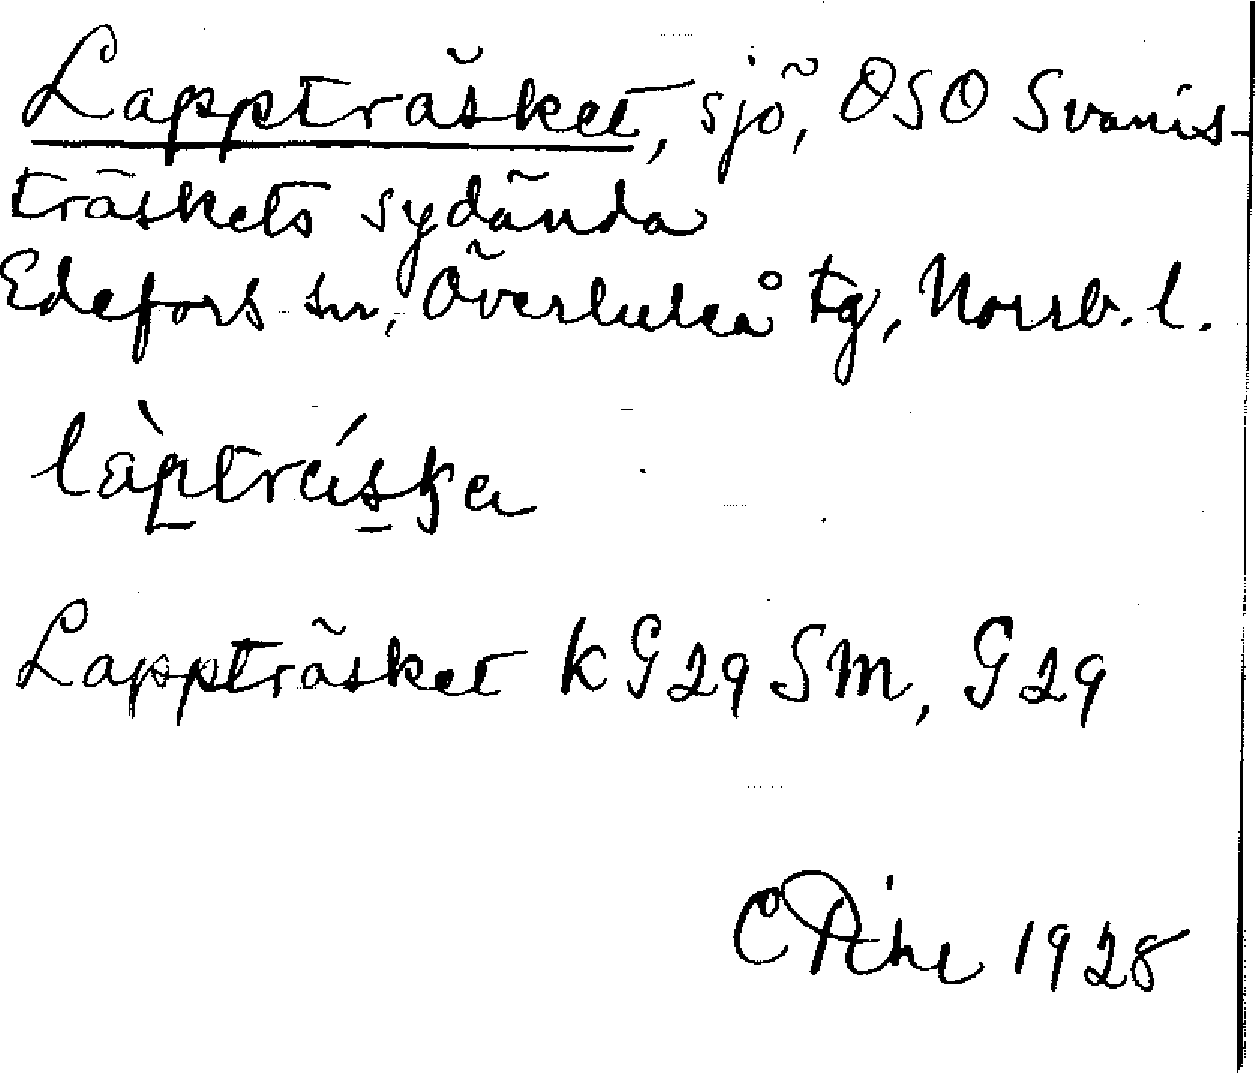 Lappträsket, sjö, OSO Svanis-
träskets sydända
Edefors sn, Överluleå tg, Norrb. l.
Lappträsket k G29 SM, G29
1928